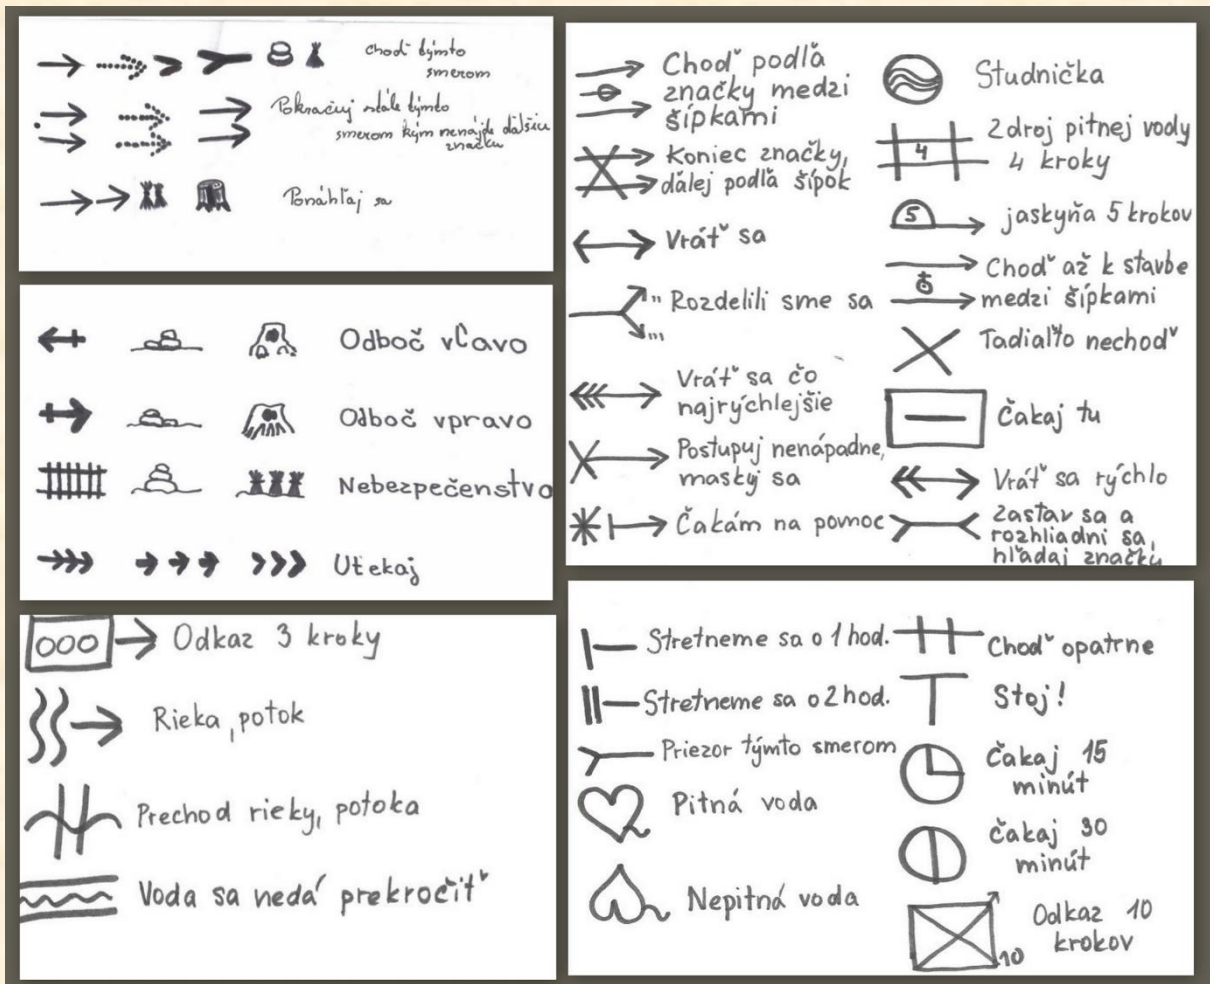 choď týmto
smerom
Pokračuj stále týmto
smerom kým nenájdeš ďalšiu
značku
Ponáhľaj sa
Odboč vľavo
Odboč vpravo
Nebezpečenstvo
Utekaj
Odkaz 3 kroky
Rieka, potok
Prechod rieky, potoka
Voda sa nedá prekročiť
Choď podľa
značky medzi
šípkami
Koniec značky,
ďálej podľa šípok
Vráť sa
Rozdelili sme sa
Vráť sa čo
najrýchlejšie
Postupuj nenápadne,
maskuj sa
Čakám na pomoc
Studnička
4
Zdroj pitnej vody
4 kroky
5
jaskyňa 5 krokov
Choď až k stavbe
medzi šípkami
Tadiaľto nechoď
Čakaj tu
Vráť sa rýchlo
Zastav sa a
rozhliadni sa,
hľadaj značku
Stretneme sa o 1 hod.
Stretneme sa o 2 hod.
Priezor týmto smerom
Pitná voda
Nepitná voda
Choď opatrne
Stoj!
Čakaj 15
minút
Čakaj 30
minút
10
Odkaz 10
krokov